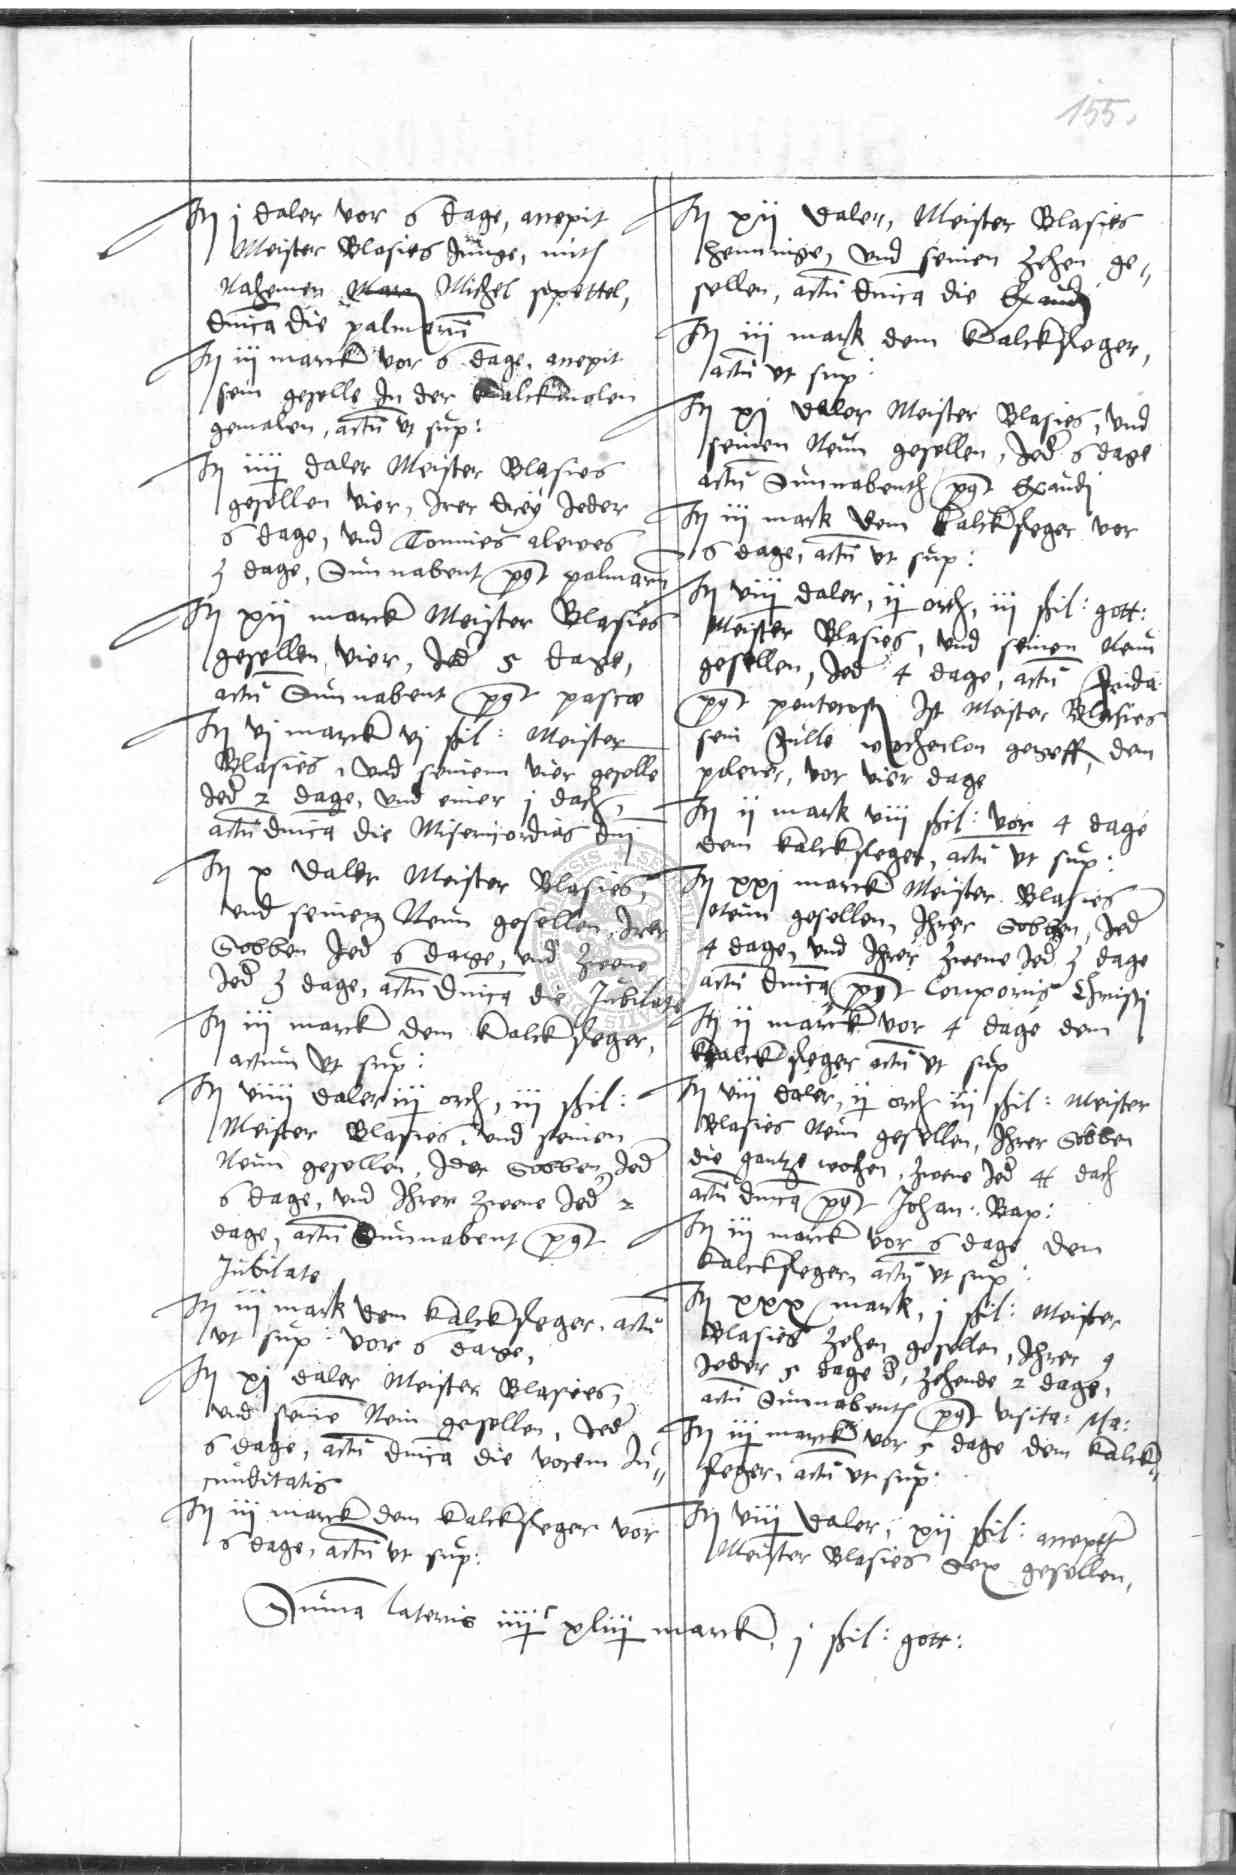 155.
It j daler vor 6 dage, accepit
Meister Blasies Junge, mith
Nahemen Michel
dnica die palmarum
It iij marck vor 6 dage, accepit
sein geselle In der kalckmolen
gemalen, actu ut sup:
It iiij daler Meister Blasies
gesellen vier, Irer drey Jeder
6 dage, und Tonnies alewes
3 dage, Sunnabent post palmaru
It xij marck Meister Blasies
gesellen, vier, Jed 5 dage,
actu Sunnabent post pasce
It vj marck vj ßil: Meister
Blasies, und seinem vier geselle
Jed 2 dage, und einer j dach,
actu dnica die Misericordias dnj
It x daler Meister Blasies,
und seinen Neun gesellen, Irer
Sobben Jed 6 dage, und zweene
Jed 3 dage, actu dnica die Jubilate
It iij marck dem kalckßleger,
actum ut sup:
It viiij daler iij orth, iij ßil:
Meister Blasies, und seinen
Neun gesellen, Irer Sobben Jed
6 dage, und Ihrer zweene Jed 2
dage, actu Sunnabent post
Jubilate
It iij mark dem kalckßleger, actu
ut sup: vor 6 dage,
It xj daler Meister Blasies,
und seine Nein gesellen, Jed
6 dage, actu dnica die vocem Ju=
cunditatis
It iij marck dem kalckßleger vor
6 dage, actu ut sup:
It xij daler, Meister Blasies
Henninge, und seinen Zehen ge=
sellen, actu dnica die Exaudj
It iij mark dem kalckßleger,
actu ut sup:
It xj daler Meister Blasies, und
seinen Neun gesellen, Jed 6 dage
actu Sunnabenth post Exaudj
It iij mark dem kalckßleger vor
6 dage, actu ut sup:
It viij daler, ij orth, iij ßil: gott:
Meister Blasies, und seinen Neun
gesellen, Jed 4 dage, actu Frida
post pentecost Ist Meister Blasies
sein fulle wochenlon dem
vor vier dage
It ij mark viij ßil: vor 4 dage
dem kalckßleger, actu ut sup:
It xxj marck Meister Blasies
Neun gesellen, Ihrer Sobben, Jed
4 dage, und Ihrer zweene Jed 3 dage
actu dnica post Corporis Christj
It ij marck vor 4 dage dem
kalckßleger actu ut sup
It viij daler, ij orth iij ßil: Meister
Blasies Neun gesellen, Ihrer Sobben
die gantze wochen, zweene Jed 4 dach
actu dnica post Johan: Bap:
It iij marck vor 6 dage dem
kalckßleger, actu ut sup:
It xxx mark, j ßil: Meister
Blasies Zehen gesellen, Ihrer 9
Jeder 5 dage d, zehende 2 dage,
actu Sunnabenth post visita: Ma:
It iij marck vor 5 dage dem kalck=
ßleger, actu ut sup:
It viij daler, xij ßil: accepit
Meister Blasies Sex gesellen,
Suma lateris iiijc xliij marck, j ßil: gott: